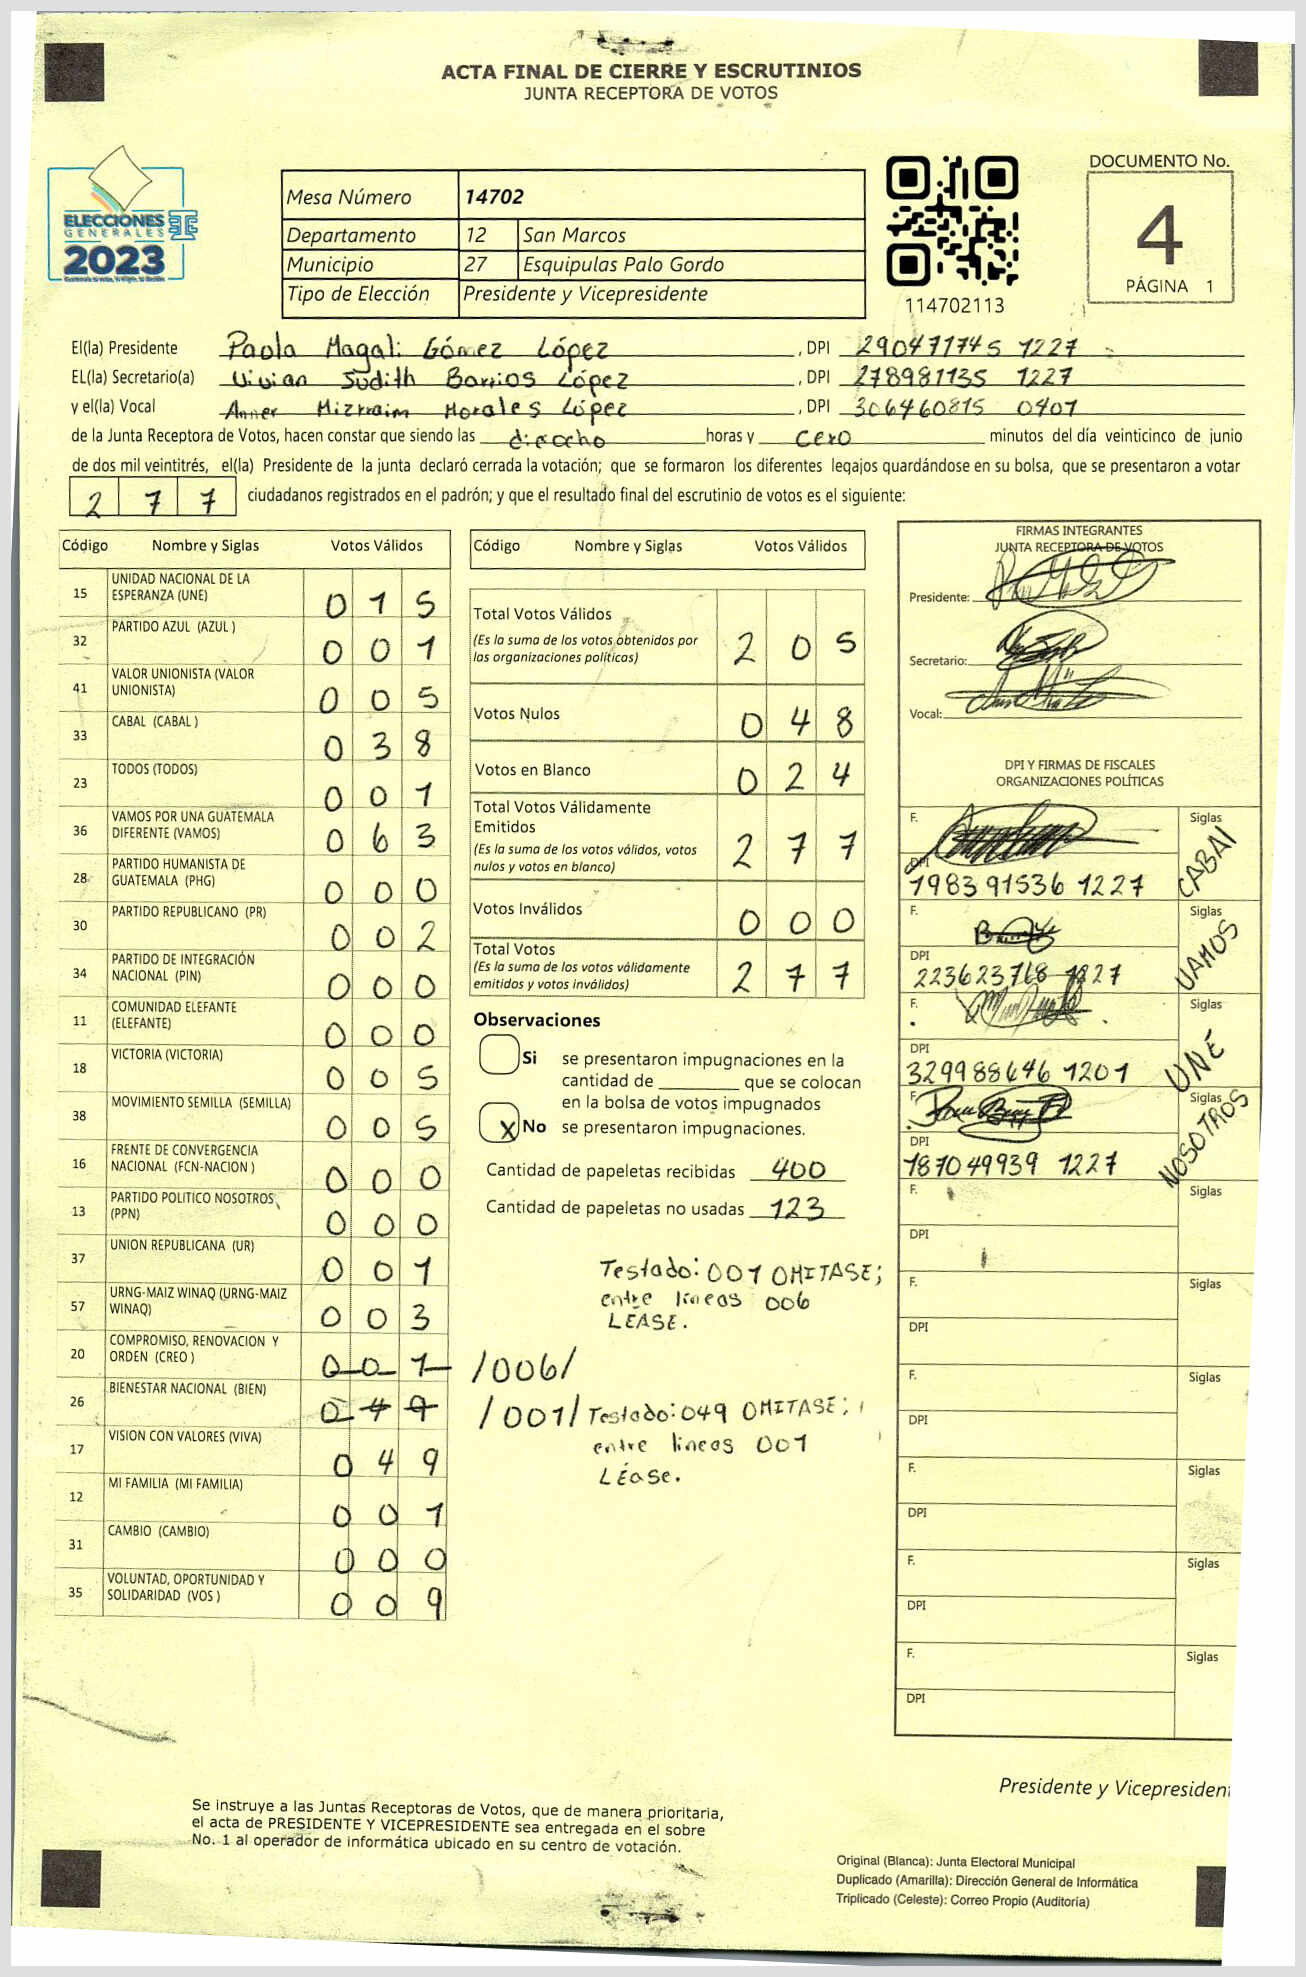 ACTA FINAL DE CIERRE Y ESCRUTINIOS
JUNTA RECEPTORA DE VOTOS
ELECCIONES
GENERALES
2023
Mesa Número 14702
Departamento 12 San Marcos
Municipio 27 Esquipulas Palo Gordo
Tipo de Elección Presidente y Vicepresidente
114702113
DOCUMENTO No.
4
PÁGINA 1
El(la) Presidente Paola Magali Gómez López , DPI 290471745 1227
EL(la) Secretario(a) Vivian Judith Barrios López , DPI 278981135 1227
y el(la) Vocal Anner Mizraim Morales López , DPI 306460815 0401
de la Junta Receptora de Votos, hacen constar que siendo las dieciocho horas y cero minutos del día veinticinco de junio
de dos mil veintitrés, el(la) Presidente de la junta declaró cerrada la votación; que se formaron los diferentes legajos guardándose en su bolsa, que se presentaron a votar
2 7 7 ciudadanos registrados en el padrón; y que el resultado final del escrutinio de votos es el siguiente:
Código Nombre y Siglas Votos Válidos
15 UNIDAD NACIONAL DE LA ESPERANZA (UNE) 0 1 5
32 PARTIDO AZUL (AZUL ) 0 0 1
41 VALOR UNIONISTA (VALOR UNIONISTA) 0 0 5
33 CABAL (CABAL ) 0 3 8
23 TODOS (TODOS) 0 0 1
36 VAMOS POR UNA GUATEMALA DIFERENTE (VAMOS) 0 6 3
28 PARTIDO HUMANISTA DE GUATEMALA (PHG) 0 0 0
30 PARTIDO REPUBLICANO (PR) 0 0 2
34 PARTIDO DE INTEGRACIÓN NACIONAL (PIN) 0 0 0
11 COMUNIDAD ELEFANTE (ELEFANTE) 0 0 0
18 VICTORIA (VICTORIA) 0 0 5
38 MOVIMIENTO SEMILLA (SEMILLA) 0 0 5
16 FRENTE DE CONVERGENCIA NACIONAL (FCN-NACION ) 0 0 0
13 PARTIDO POLITICO NOSOTROS (PPN) 0 0 0
37 UNION REPUBLICANA (UR) 0 0 1
57 URNG-MAIZ WINAQ (URNG-MAIZ WINAQ) 0 0 3
20 COMPROMISO, RENOVACION Y ORDEN (CREO ) 0 0 1 /006/
26 BIENESTAR NACIONAL (BIEN) 0 4 9 /001/
17 VISION CON VALORES (VIVA) 0 4 9
12 MI FAMILIA (MI FAMILIA) 0 0 1
31 CAMBIO (CAMBIO) 0 0 0
35 VOLUNTAD, OPORTUNIDAD Y SOLIDARIDAD (VOS ) 0 0 9
Código Nombre y Siglas Votos Válidos
Total Votos Válidos 2 0 5
(Es la suma de los votos obtenidos por
las organizaciones políticas)
Votos Nulos 0 4 8
Votos en Blanco 0 2 4
Total Votos Válidamente
Emitidos 2 7 7
(Es la suma de los votos válidos, votos
nulos y votos en blanco)
Votos Inválidos 0 0 0
Total Votos 2 7 7
(Es la suma de los votos válidamente
emitidos y votos inválidos)
Observaciones
Si se presentaron impugnaciones en la
cantidad de ________ que se colocan
en la bolsa de votos impugnados
X No se presentaron impugnaciones.
Cantidad de papeletas recibidas 400
Cantidad de papeletas no usadas 123
Testado: 001 OMITASE;
entre lineas 006
LEASE.
Testado: 049 OMITASE;
entre lineas 001
LÉase.
FIRMAS INTEGRANTES
JUNTA RECEPTORA DE VOTOS
Presidente:
Secretario:
Vocal:
DPI Y FIRMAS DE FISCALES
ORGANIZACIONES POLÍTICAS
F. Siglas CABAL
DPI 198391536 1227
F. Siglas VAMOS
DPI 223623768 1227
F. Siglas UNE
DPI 329988646 1201
F. Siglas NOSOTROS
DPI 187049939 1227
F. Siglas
DPI
F. Siglas
DPI
F. Siglas
DPI
F. Siglas
DPI
F. Siglas
DPI
F. Siglas
DPI
Presidente y Vicepresiden
Se instruye a las Juntas Receptoras de Votos, que de manera prioritaria,
el acta de PRESIDENTE Y VICEPRESIDENTE sea entregada en el sobre
No. 1 al operador de informática ubicado en su centro de votación.
Original (Blanca): Junta Electoral Municipal
Duplicado (Amarilla): Dirección General de Informática
Triplicado (Celeste): Correo Propio (Auditoría)